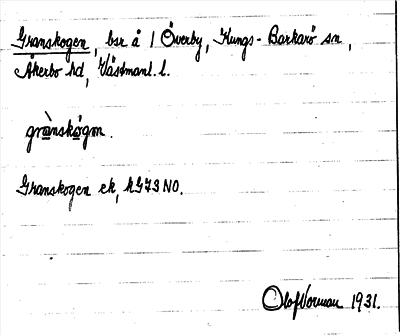 Granskogen, bsr å 1 Överby, Kungs-Barkarö sn,
Åkerbo hd, Västmanl. l.
grànskógen.
Granskogen ek, hG73NO.
Olof Norman 1931.